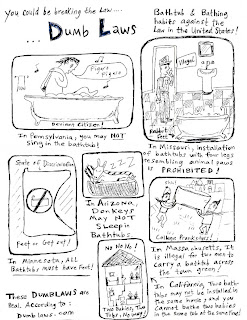 You could be breaking the Law....
... Dumb Laws
Bathtub & Bathing
habits against the
Law in the United States!
Figaro
Figaro
Deviant Citizen!
In Pennsylvania, you may NOT
sing in the bathtub!
illegal
Rabbit
Feet
In Missouri, installation
of bathtubs with four legs
resembling animal paws
is PROHIBITED!
State of Discrimination
Feet or Get out!
In Minnesota, ALL
Bathtubs must have feet!
ZZZZ
In Arizona,
Donkeys
May NOT
Sleep in
Bathtubs.
College Pranksters!
In Massachusetts, It
is illegal for two men to
carry a bathtub across
the town green!
No No No!
Two Babies, Two
Tubs, No way!
In California, Two bath-
tubs may not be installed in
the same house; and you
cannot bathe two babies
in the same tub at the same time!
These DUMBLAWS are
real. According to:
Dumblaws.com